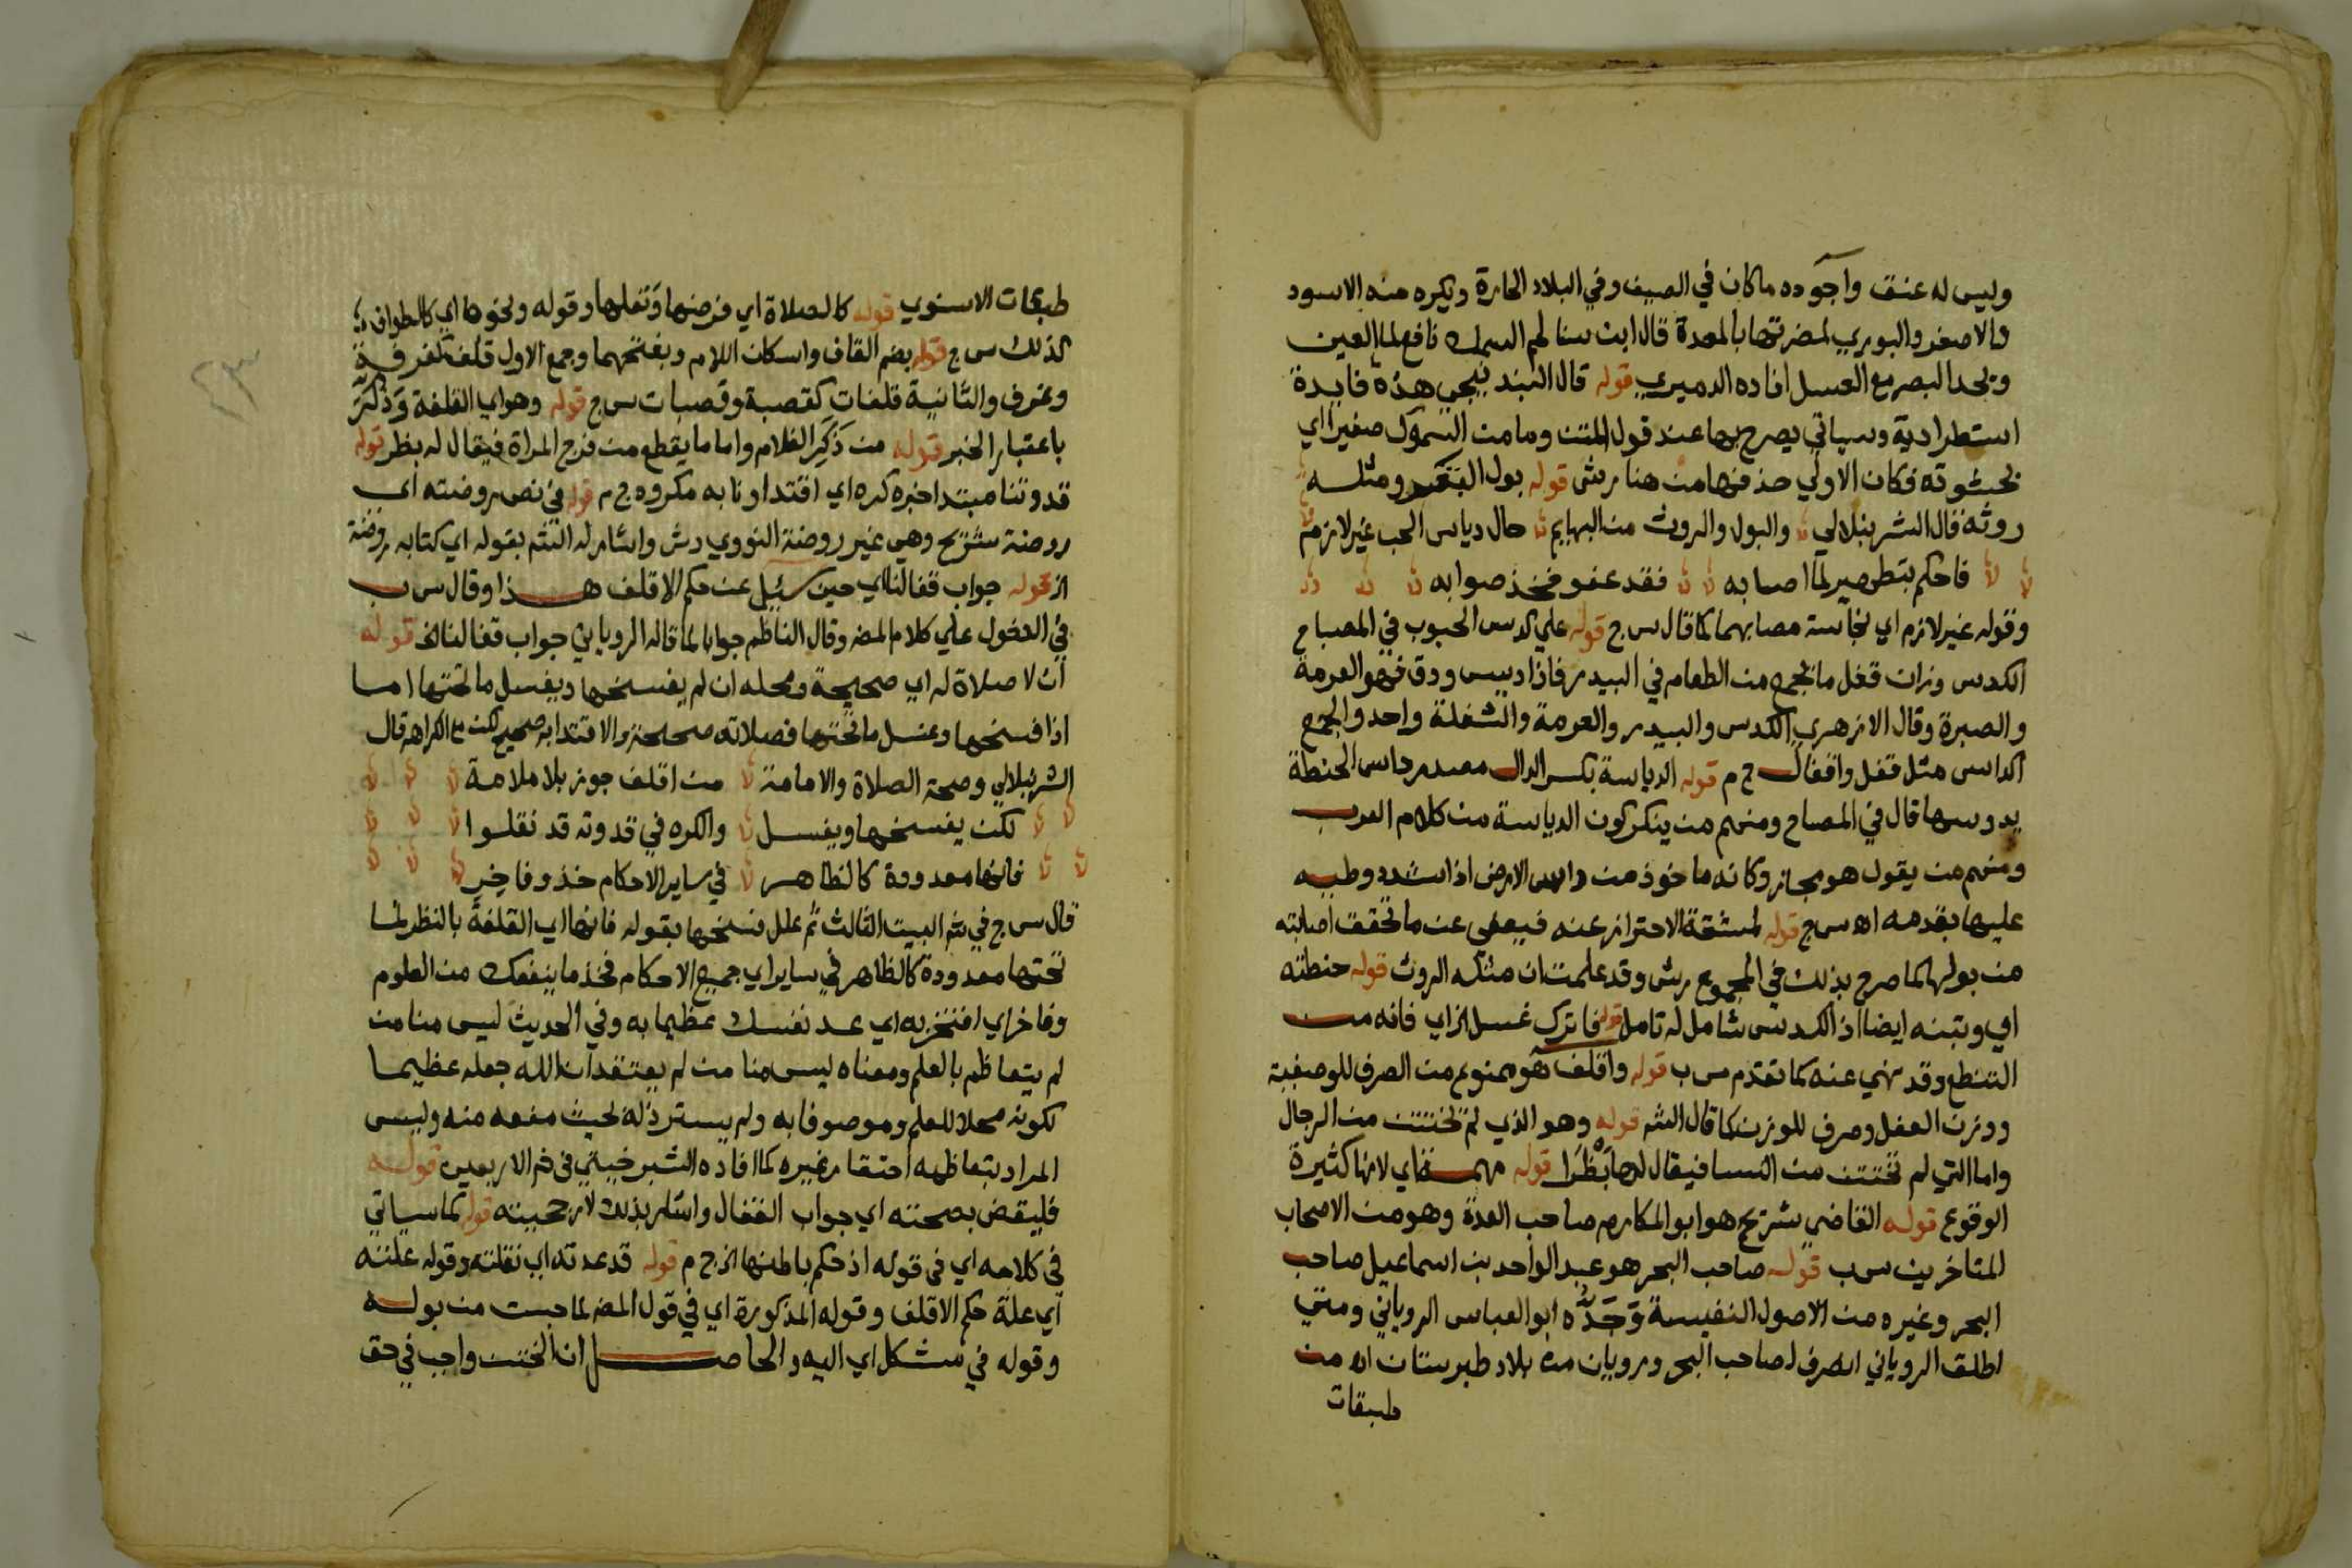 وليس له عنق وأجوده ما كان في الصيف وفي البلاد الحارة ويكره منه الاسود
والاصفر والبوري لمضرتها بالمعدة قال ابن سنا لحم السمك نافع لما العين
ويحد البصر مع العسل افاده الدميري قوله قال البندنيجي هذه فايدة
استطرادية وسياتي يصرح بها عند قول المتن وما من السموك صغيرا اي
بحشوته فكان الاولي حذفها من هنا رش قوله بول البقر ومثله
روثه قال الشرنبلالي والبول والروث من البهايم حال دياس الحب غير لازم
فاحكم بتطهير لما اصابه فقد عفو فخذ صوابه
وقوله غير لازم اي نجاسة مصابهما كما قال س ج قوله علي كدس الحبوب في المصباح
الكدس وزان قفل ما يجمع من الطعام في البيدر فاذا ديس ودق فهو العرمة
والصبرة وقال الازهري الكدس والبيدر والعرمة والشغلة واحد والجمع
اكداس مثل قفل واقفال ح م قوله الدياسة بكسر الدال مصدر داس الحنطة
يدوسها قال في المصباح ومنهم من ينكر كون الدياسة من كلام العرب
ومنهم من يقول هو مجاز وكانه ماخوذ من داس الارض اذا شدد وطيه
عليها بقدمه اه س ج قوله لمشقة الاحتراز عنه فيعفي عن ما تحقق اصابته
من بولها كما صرح بذلك في المجموع رش وقد علمت ان مثله الروث قوله حنطته
اي وتبنه ايضا اذ الكدس شامل له تامل قوله فاترك غسل الخ اي فانه من
التنطع وقد نهي عنه كما تقدم س ب قوله واقلف هو ممنوع من الصرف للوصفية
ووزن الفعل وصرف للوزن كما قال الشم قوله وهو الذي لم تختتن من الرجال
واما التي لم تختتن من النسا فيقال لها بَظْرَا قوله مهمة اي لانها كثيرة
الوقوع قوله القاضي شريح هو ابو المكارم صاحب العدة وهو من الاصحاب
المتاخرين س ب قوله صاحب البحر هو عبد الواحد بن اسماعيل صاحب
البحر وغيره من الاصول النفيسة وَجَدُّه ابو العباس الروياني ومتي
اطلق الروياني انصرف لصاحب البحر ورويان من بلاد طبرستان اه من
طبقات
طبقات الاسنوي قوله كالصلاة اي فرضها ونفلها وقوله ونحوها اي كالطواف
كذلك س ج قوله بضم القاف واسكان اللام وبفتحهما وجمع الاول قلف كغرفة
وغرف والثانية قلفات كقصبة وقصبات س ج قوله وهو اي القلفة وَذُكِّرَ
باعتبار الخبر قوله من ذَكَرِ الغلام واما ما يقطع من فرج المراة فيقال له بظر قوله
قدوتنا مبتدا خبره كره اي اقتداونا به مكروه ح م قوله في نص روضته اي
روضة شريح وهي غير روضة النووي رش واشار له الشم بقوله اي كتابه روضة
الخ قوله جواب قفالنا اي حين سئل عن حكم الاقلف هذا وقال س ب
في الدخول علي كلام المص وقال الناظم جوابا لما قاله الروياني جواب قفالنا الخ قوله
ان لا صلاة له اي صحيحة ومحله ان لم يفسخها ويغسل ما تحتها اما
اذا فسخها وغسل ما تحتها فصلاته صحيحة والاقتدا به صحيح لكن مع الكراهه قال
الشرنبلالي وصحة الصلاة والامامة من اقلف جوز بلا ملامة
لكن يفسخها ويغسل والكره في قدوته قد نقلوا
فانها معدودة كالظاهر في ساير الاحكام خذ وفاخِرِ
قال س ج في شم البيت الثالث ثم علل فسخها بقوله فانها اي القلفة بالنظر لما
تحتها معدودة كالظاهر في ساير اي جميع الاحكام فخذ ما ينفعك من العلوم
وفاخر اي افتخر به اي عد نفسك عظيما به وفي الحديث ليس منا من
لم يتعاظم بالعلم ومعناه ليس منا من لم يعتقد ان الله جعله عظيما
لكونه محلا للعلم وموصوفا به ولم يسترذله بحيث منعه منه وليس
المراد بتعاظمه احتقار غيره كما افاده الشبرخيتي في شم الاربعين قوله
فليقض بصحته اي جواب القفال واشار بذلك لارجحيته قوله كما سياتي
في كلامه اي في قوله اذ حكم باطنها الخ ح م قوله قد عدته اي نقلته وقوله علته
اي علة حكم الاقلف وقوله المذكورة اي في قول المص لما حبست من بوله
وقوله في شكل اي اليه والحاصل ان الختن واجب في حق